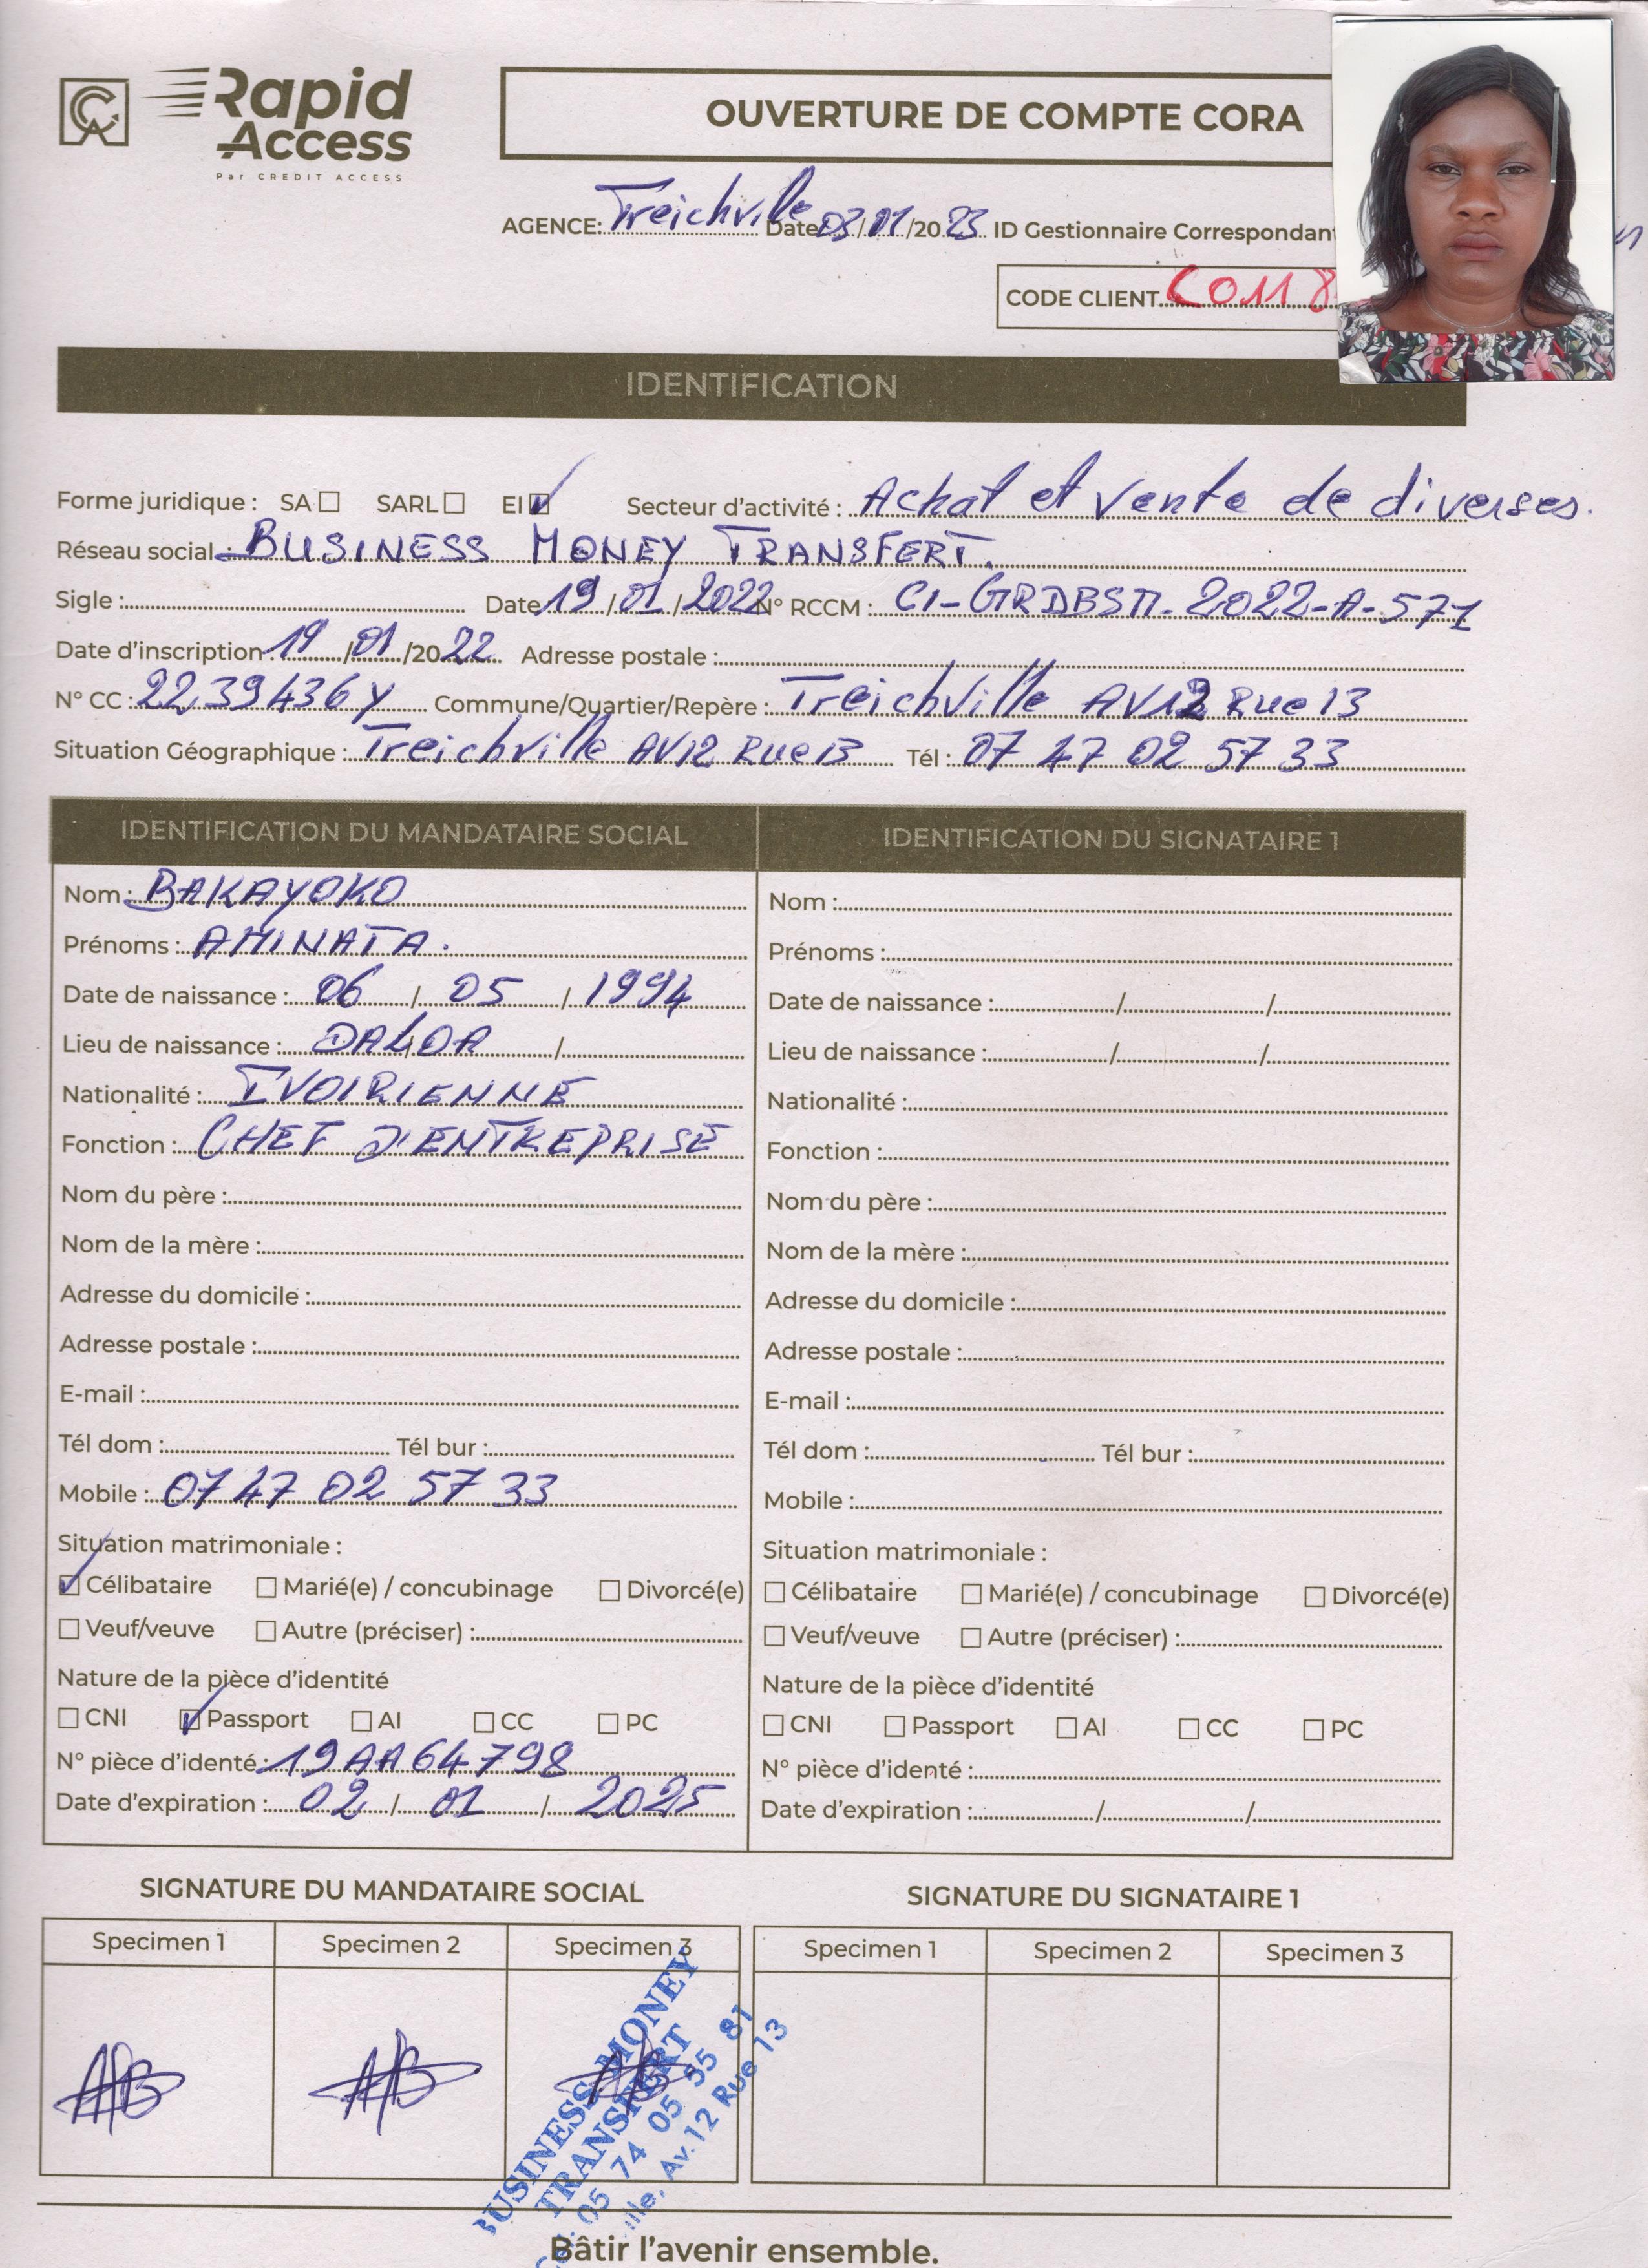 CA Rapid Access
Par CREDIT ACCESS
OUVERTURE DE COMPTE CORA
AGENCE: Treichville Date 03/01/2023 ID Gestionnaire Correspondan
CODE CLIENT C0118
IDENTIFICATION
Forme juridique : SA☐ SARL☐ EI☑ Secteur d'activité : Achat et vente de diverses.
Réseau social : BUSINESS MONEY TRANSFERT.
Sigle : Date 19/01/2022 N° RCCM : CI-GRDBSM-2022-A-571
Date d'inscription 19/01/2022 Adresse postale :
N° CC : 2239436Y Commune/Quartier/Repère : Treichville AV12 Rue 13
Situation Géographique : Treichville AV12 Rue 13 Tél : 07 47 02 57 33
IDENTIFICATION DU MANDATAIRE SOCIAL
Nom : BAKAYOKO
Prénoms : AMINATA.
Date de naissance : 06 / 05 / 1994
Lieu de naissance : DALOA /
Nationalité : IVOIRIENNE
Fonction : CHEF D'ENTREPRISE
Nom du père :
Nom de la mère :
Adresse du domicile :
Adresse postale :
E-mail :
Tél dom : Tél bur :
Mobile : 07 47 02 57 33
Situation matrimoniale :
☑ Célibataire ☐ Marié(e) / concubinage ☐ Divorcé(e)
☐ Veuf/veuve ☐ Autre (préciser) :
Nature de la pièce d'identité
☐ CNI ☑ Passport ☐ AI ☐ CC ☐ PC
N° pièce d'identé : 19AA64798
Date d'expiration : 02 / 01 / 2025
IDENTIFICATION DU SIGNATAIRE 1
Nom :
Prénoms :
Date de naissance : / /
Lieu de naissance : / /
Nationalité :
Fonction :
Nom du père :
Nom de la mère :
Adresse du domicile :
Adresse postale :
E-mail :
Tél dom : Tél bur :
Mobile :
Situation matrimoniale :
☐ Célibataire ☐ Marié(e) / concubinage ☐ Divorcé(e)
☐ Veuf/veuve ☐ Autre (préciser) :
Nature de la pièce d'identité
☐ CNI ☐ Passport ☐ AI ☐ CC ☐ PC
N° pièce d'identé :
Date d'expiration : / /
SIGNATURE DU MANDATAIRE SOCIAL
Specimen 1 Specimen 2 Specimen 3
BUSINESS MONEY
TRANSFERT
05 74 05 55 81
ille, Av.12 Rue 13
SIGNATURE DU SIGNATAIRE 1
Specimen 1 Specimen 2 Specimen 3
Bâtir l'avenir ensemble.